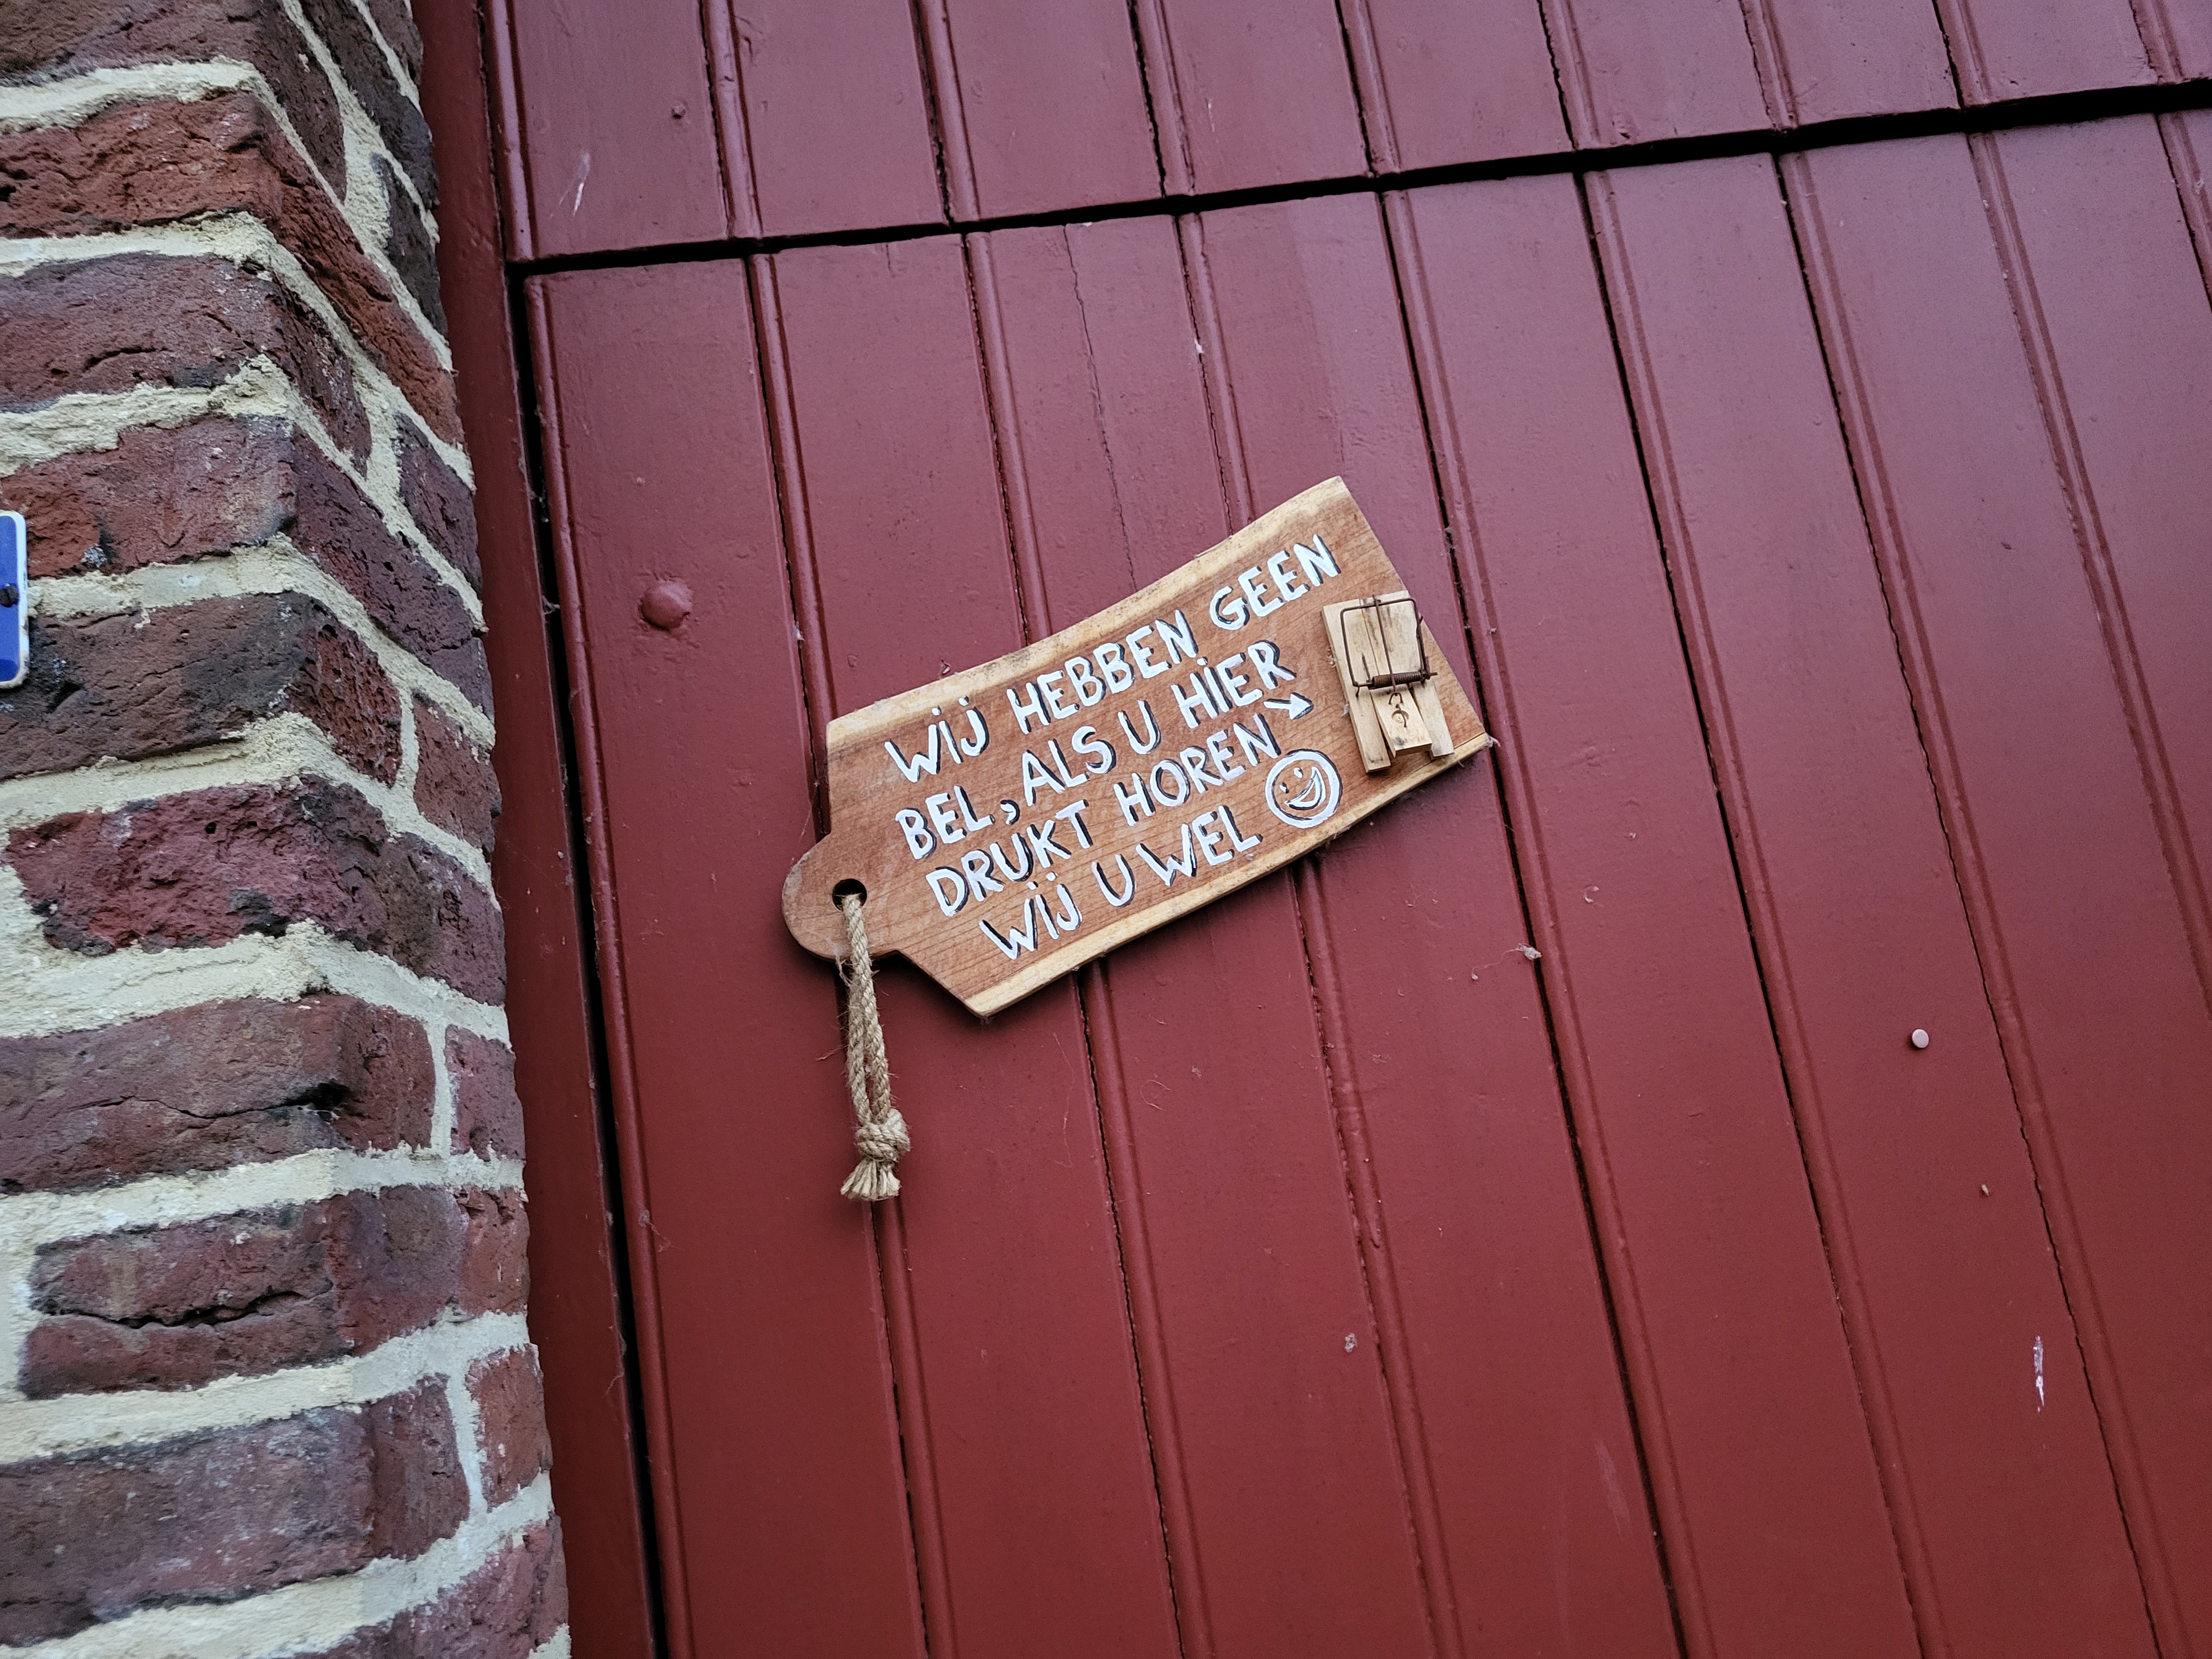 WIJ HEBBEN GEEN
BEL, ALS U HIER
DRUKT HOREN
WIJ U WEL